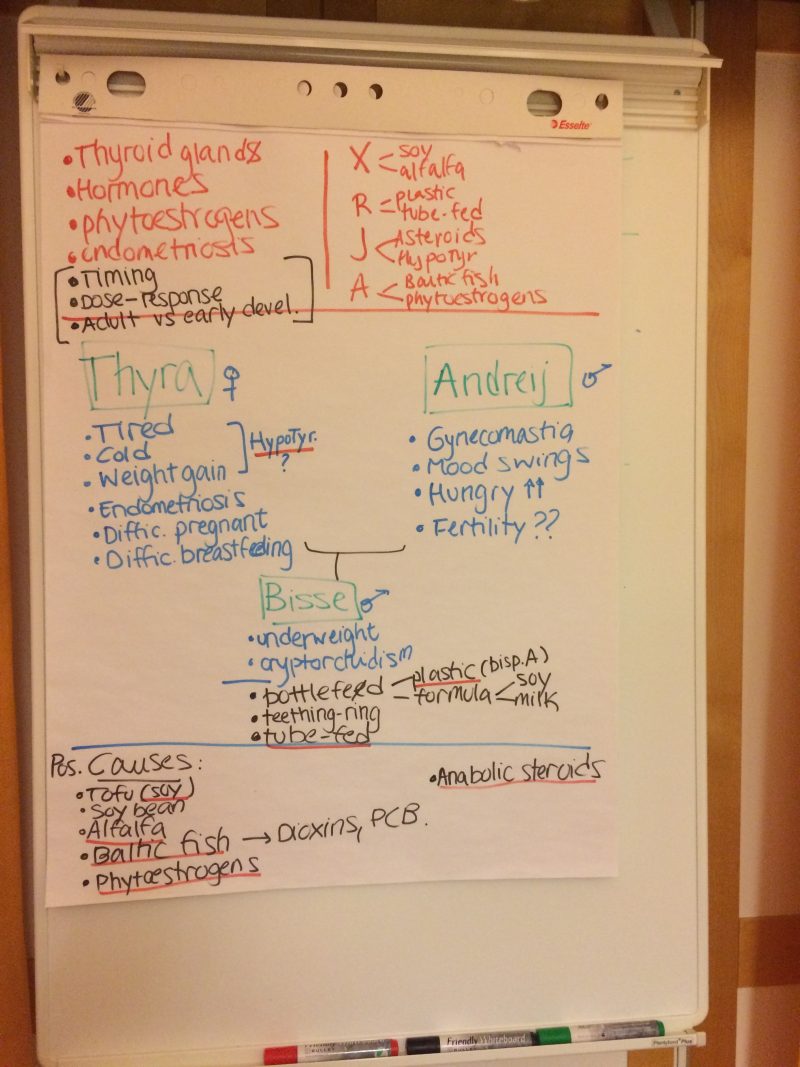 Esselte
• Thyroid glands
• Hormones
• phytoestrogens
• endometriosis
• Timing
• Dose-response
• Adult vs early devel.
X < soy
alfalfa
R = plastic
tube-fed
J < Asteroids
Hypotyr
A < Baltic fish
phytoestrogens
Thyra ♀
• Tired
• Cold
• Weight gain
Hypotyr.
?
• Endometriosis
• Diffic. pregnant
• Diffic. breastfeeding
Andreij ♂
• Gynecomastia
• Mood swings
• Hungry ↑↑
• Fertility ??
Bisse ♂
• underweight
• cryptorchidism
• bottlefeed < plastic (bisp.A)
– formula < soy
milk
• teething-ring
• tube-fed
Pos. Causes:
• Tofu (soy)
• Soy bean
• Alfalfa
• Baltic fish → Dioxins, PCB.
• Phytoestrogens
• Anabolic steroids
Friendly Whiteboard